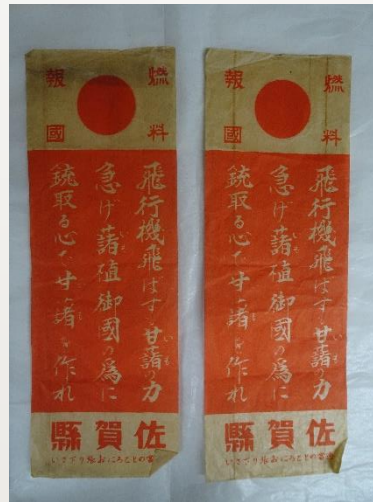 燃料
報國
飛行機飛はす甘藷の力
急げ藷植御國の爲に
銃取る心で甘藷を作れ
佐賀縣
燃料
報國
飛行機飛はす甘藷の力
急げ藷植御國の爲に
銃取る心で甘藷を作れ
佐賀縣